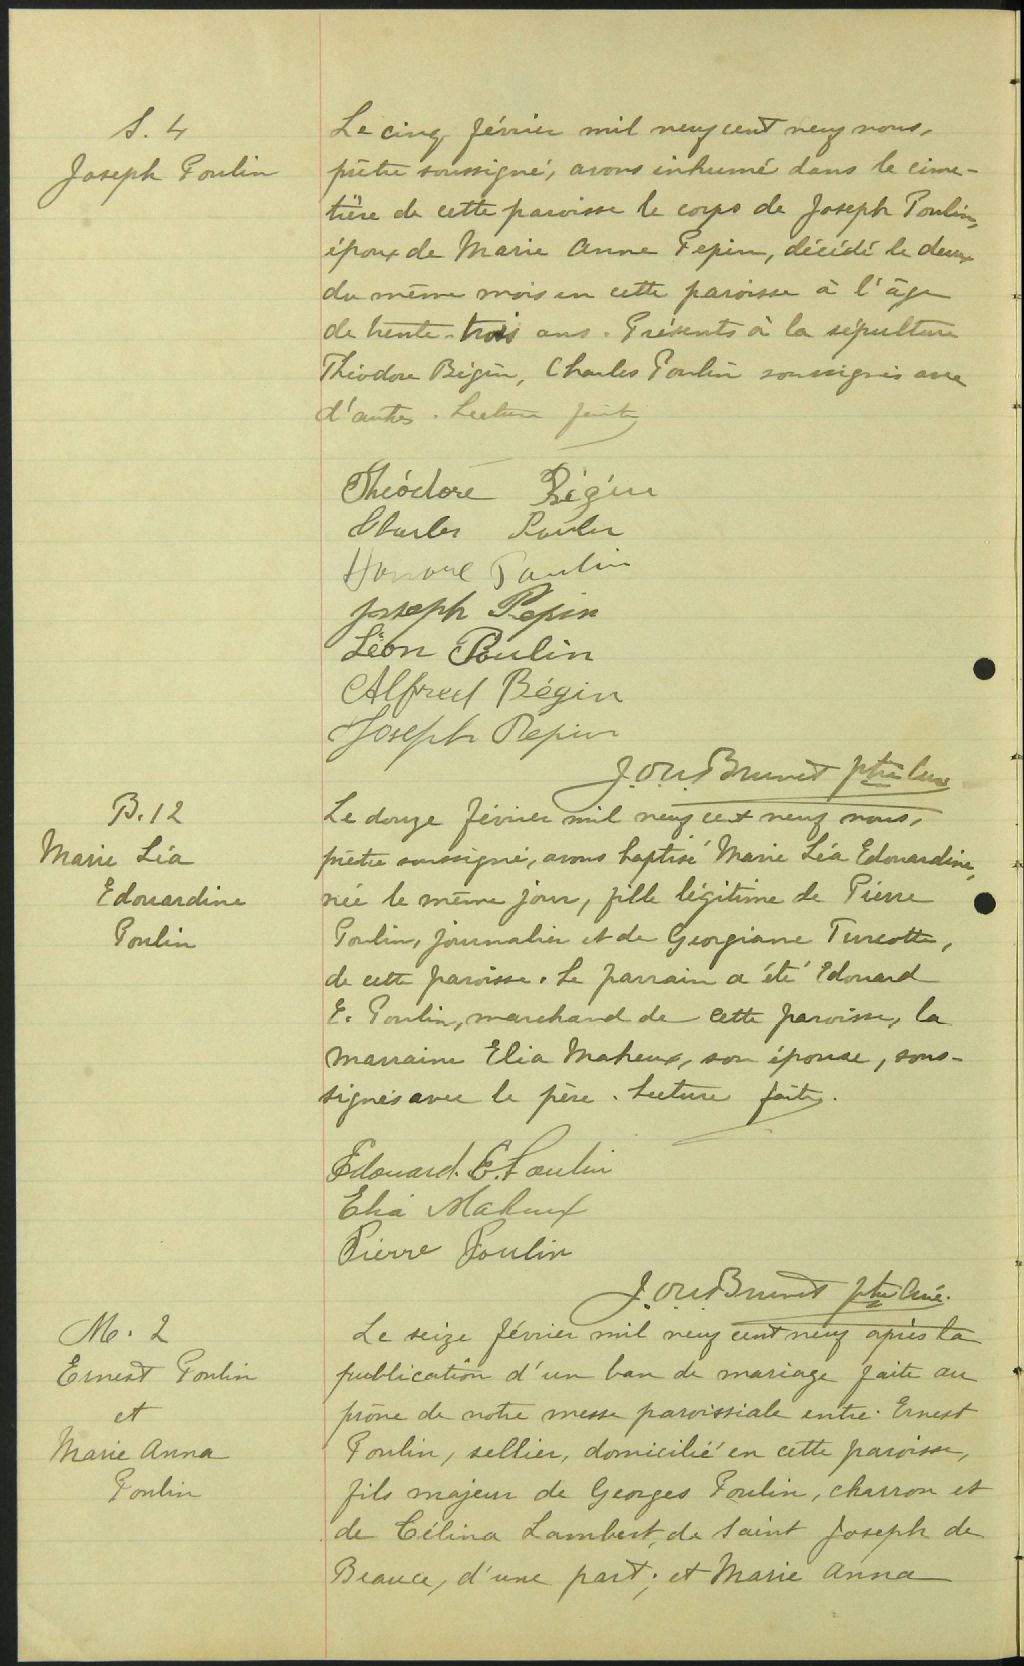 S. 4
Joseph Poulin
Le cinq février mil neuf cent neuf nous,
prêtre soussigné, avons inhumé dans le cime-
tière de cette paroisse le corps de Joseph Poulin,
époux de Marie Anne Pepin, décédé le deux
du même mois en cette paroisse à l'âge
de trente-trois ans. Présents à la sépulture
Théodore Bégin, Charles Poulin soussignés avec
d'autres. Lecture faite
Théodore Bégin
Charles Poulin
Honoré Poulin
Joseph Pepin
Léon Poulin
Alfred Bégin
Joseph Pepin
J. Brunet ptre Curé
B. 12
Marie Léa
Edouardine
Poulin
Le douze février mil neuf cent neuf nous,
prêtre soussigné, avons baptisé Marie Léa Edouardine,
née le même jour, fille légitime de Pierre
Poulin, journalier et de Georgiane Turcotte,
de cette paroisse. Le parrain a été Edouard
E. Poulin, marchand de cette paroisse, la
marraine Elia Maheux, son épouse, sous-
signés avec le père. Lecture faite.
Edouard. E. Poulin
Elia Maheux
Pierre Poulin
J. Brunet ptre Curé.
M. 2
Ernest Poulin
et
Marie Anna
Poulin
Le seize février mil neuf cent neuf après la
publication d'un ban de mariage faite au
prône de notre messe paroissiale entre Ernest
Poulin, sellier, domicilié en cette paroisse,
fils majeur de Georges Poulin, charron et
de Célina Lambert, de Saint Joseph de
Beauce, d'une part; et Marie Anna